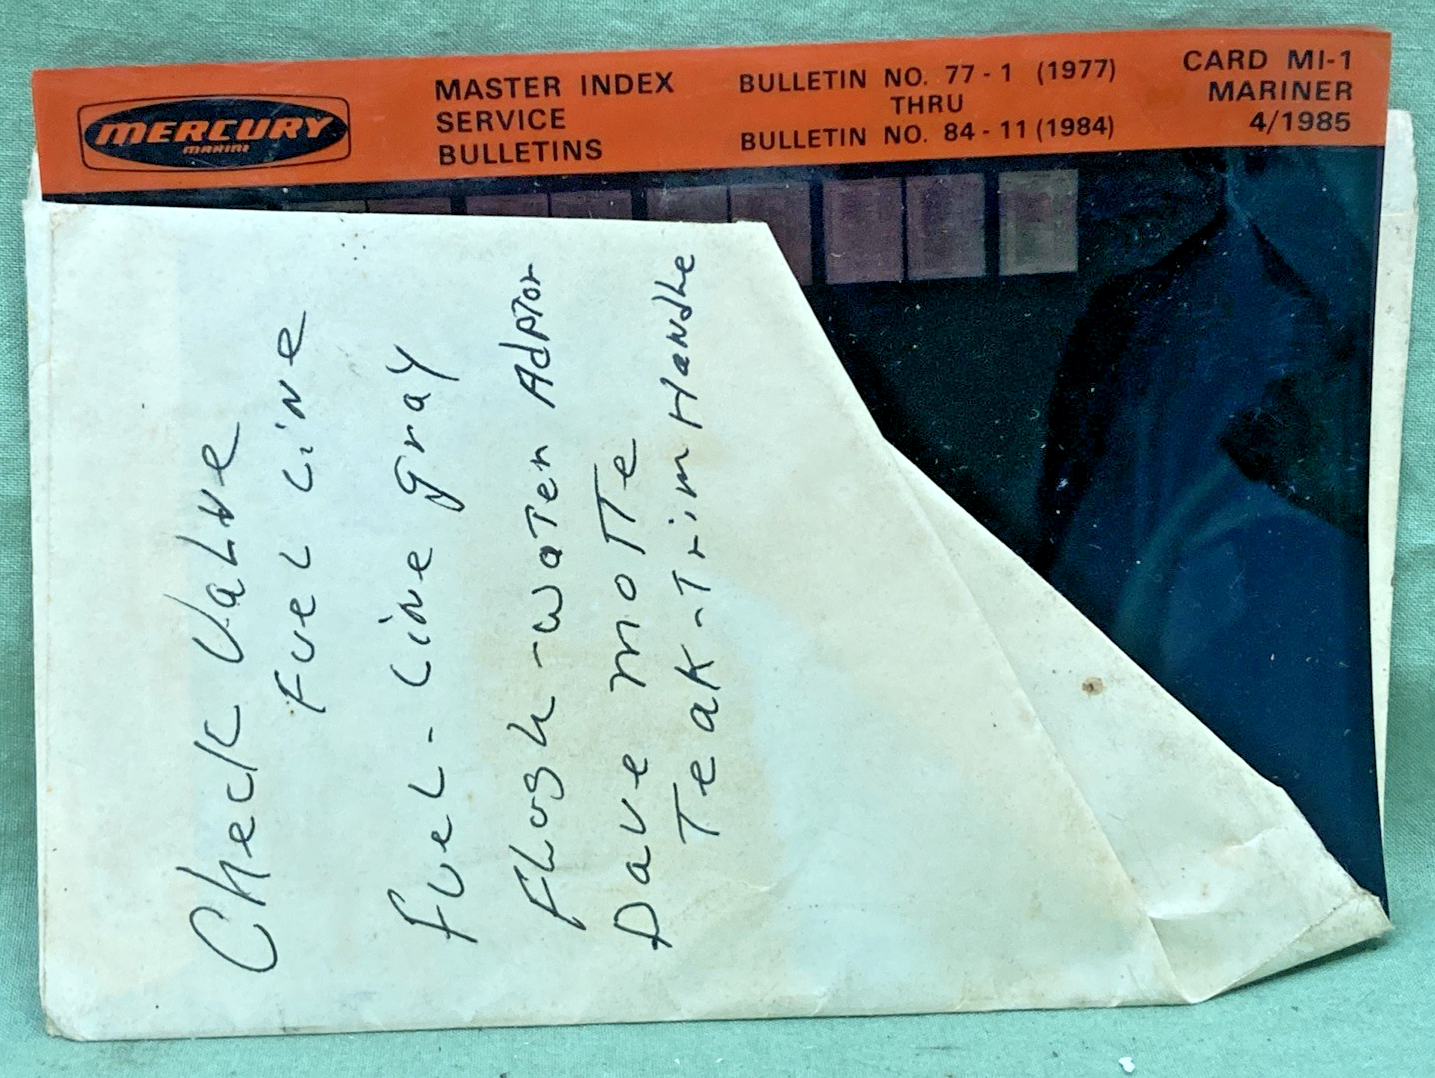 MERCURY
MARINE
MASTER INDEX
SERVICE
BULLETINS
BULLETIN NO. 77-1 (1977)
THRU
BULLETIN NO. 84-11 (1984)
CARD MI-1
MARINER
4/1985
Check Valve
Fuel Line
Fuel-Line gray
Flush-water Adptor
Dave motte
Teak-Trim Handle